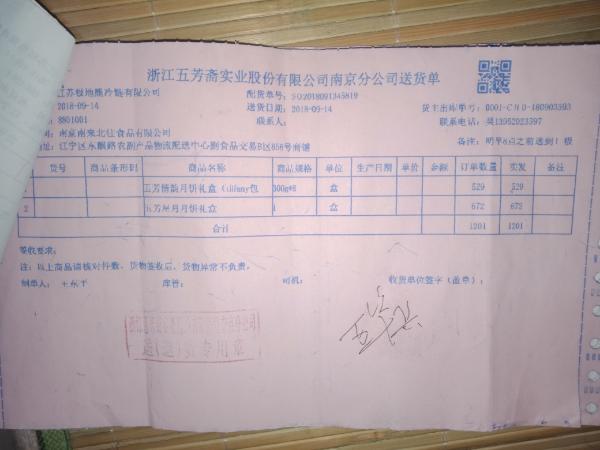 浙江五芳斋实业股份有限公司南京分公司送货单
江苏极地熊冷链有限公司
配货单号：SO2018091345819
2018-09-14
送货日期：2018-09-14
货主出库单号：0001-CHD-180903393
8801001
联系人：
联系电话：吴13952023397
南京南来北往食品有限公司
备注：明早8点之前送到1楼
江宁区东麒路农副产品物流配送中心副食品交易B区858号商铺
货号 商品条形码 商品名称 商品规格 单位 生产日期 单价 金额 订单数量 实发 备注
五芳情韵月饼礼盒 300g*8 盒 529 529
2 五芳星月月饼礼盒 1 盒 672 672
合计 1201 1201
签收要求：
注：以上商品请核对件数、货物签收后、货物异常不负责。
制单人： 库管： 司机： 收货单位签字（盖章）：
专用章